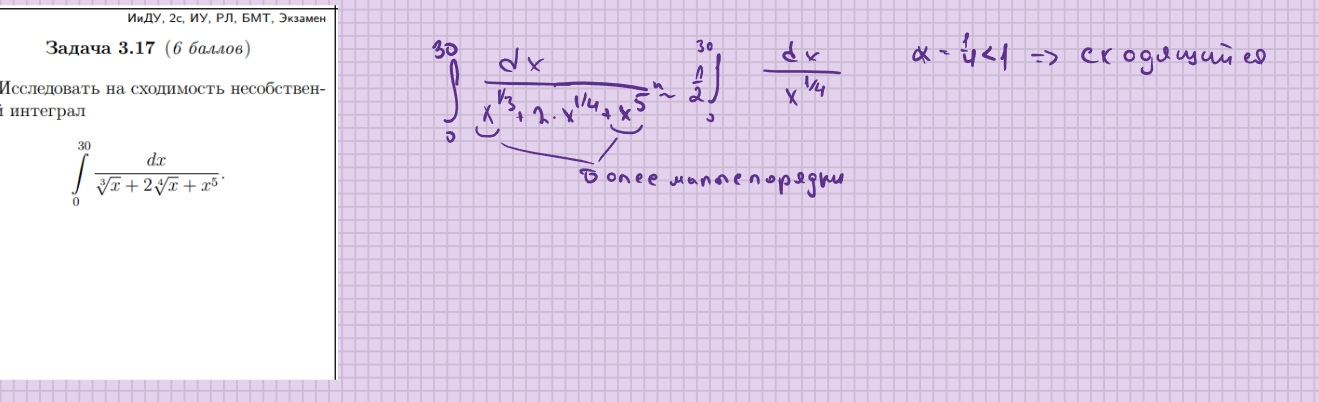 ИиДУ, 2с, ИУ, РЛ, БМТ, Экзамен
Задача 3.17 (6 баллов)
Исследовать на сходимость несобствен-
й интеграл
∫₀³⁰ dx / (∛x + 2∜x + x⁵).
∫₀³⁰ dx / (x^{1/3} + 2·x^{1/4} + x⁵) ~ 1/2 ∫₀³⁰ dx / x^{1/4} α = 1/4 < 1 => сходящийся
более малые порядки